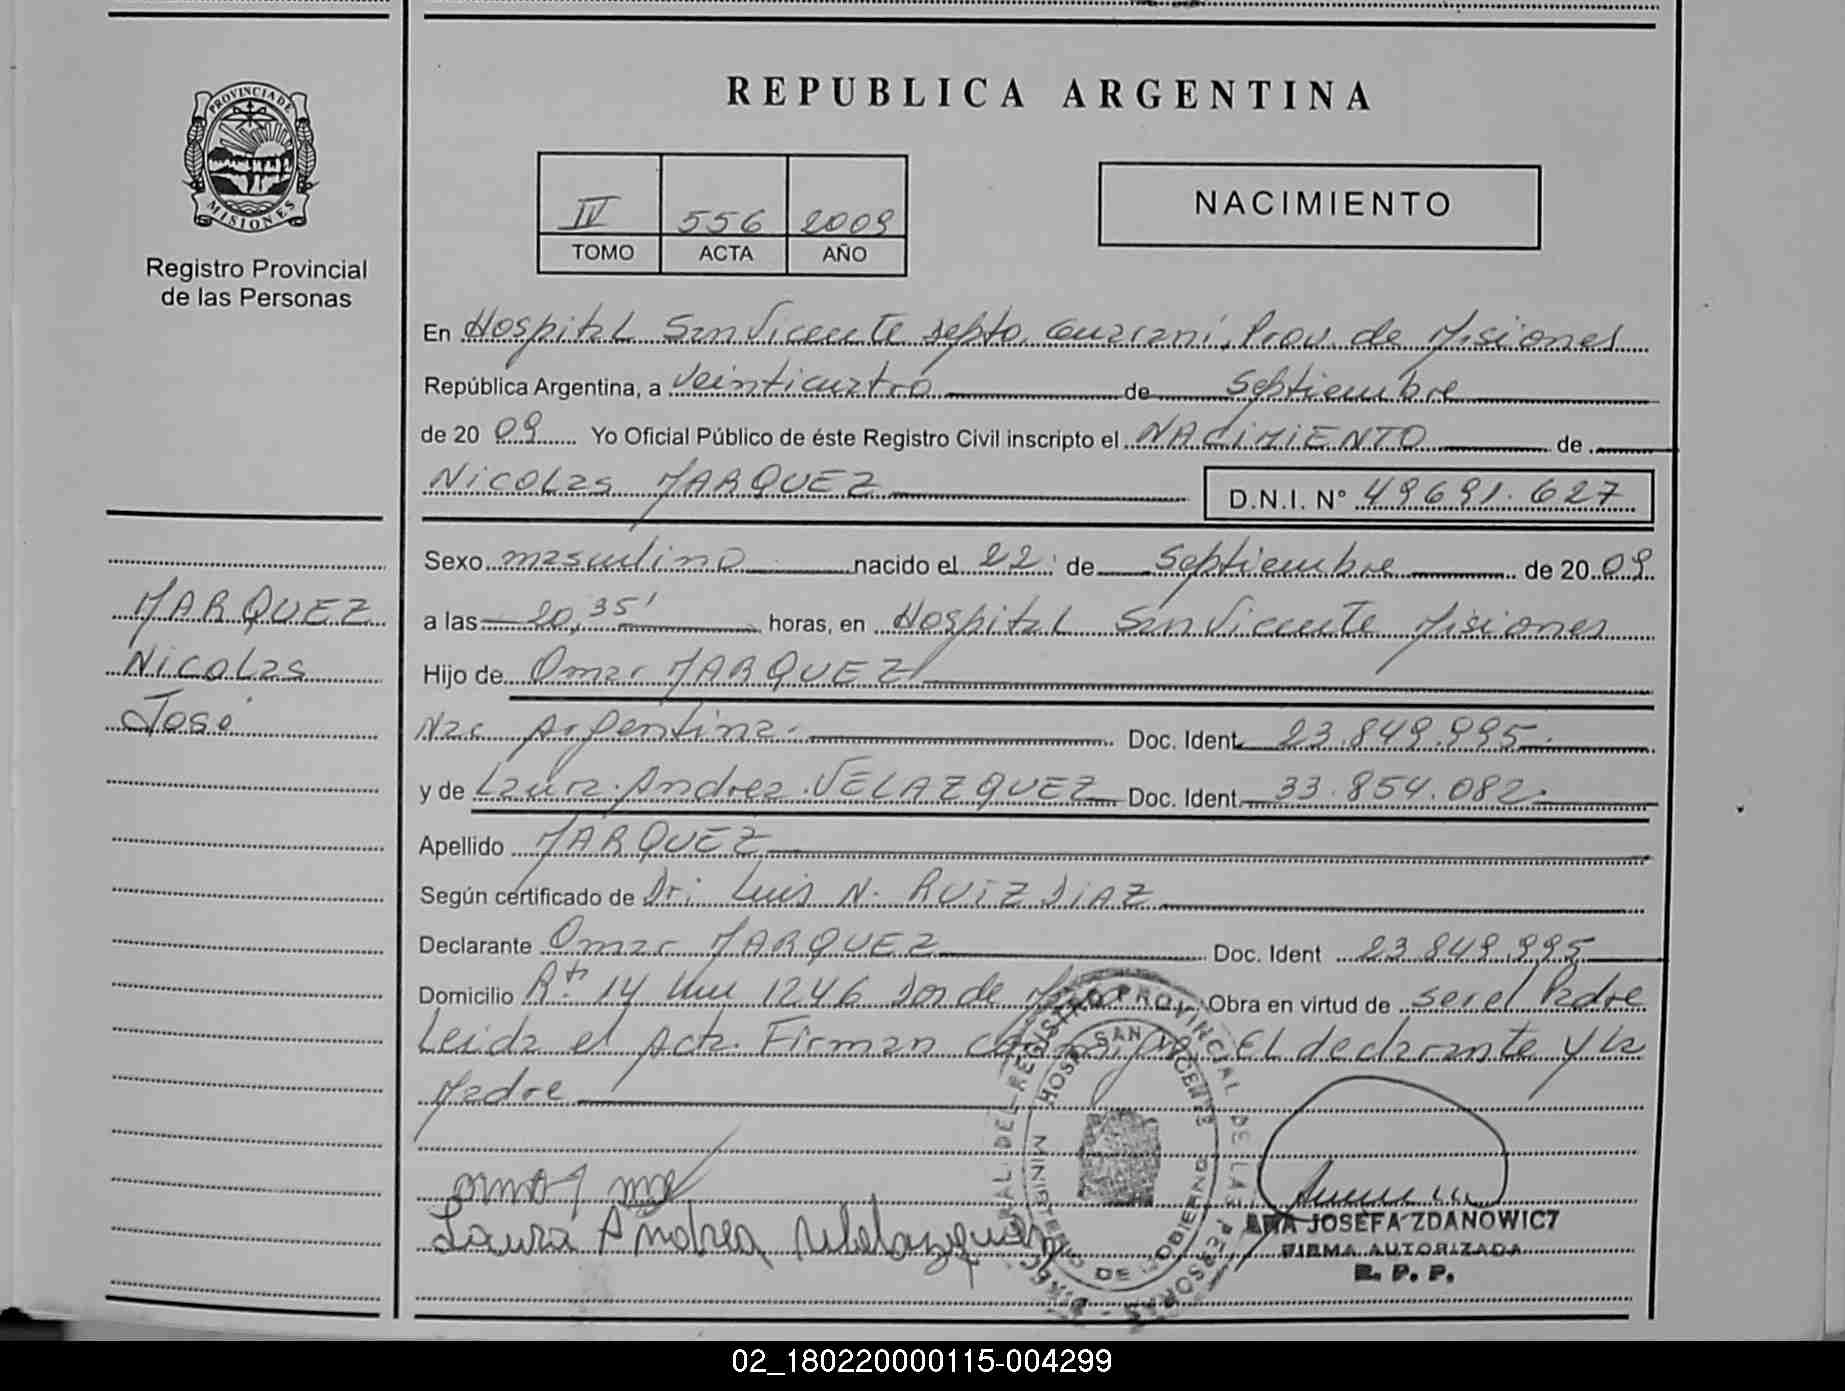 REPUBLICA ARGENTINA
PROVINCIA DE MISIONES
Registro Provincial
de las Personas
IV 556 2009
TOMO ACTA AÑO
NACIMIENTO
En Hospital San Vicente Depto. Guaraní, Prov. de Misiones
República Argentina, a veinticuatro de Septiembre
de 20 09 Yo Oficial Público de éste Registro Civil inscripto el NACIMIENTO de
Nicolas MARQUEZ D.N.I. N° 49691.627
Sexo masculino nacido el 22 de Septiembre de 20 09
a las 20,35' horas, en Hospital San Vicente Misiones
Hijo de Omar MARQUEZ
Nac Argentina. Doc. Ident. 23.849.995
y de Laura Andrea VELAZQUEZ Doc. Ident. 33.854.082
Apellido MARQUEZ
Según certificado de Dr. Luis N. RUIZ DIAZ
Declarante Omar MARQUEZ Doc. Ident 23.849.995
Domicilio Rta 14 Km 1246 Obra en virtud de ser el Padre
Leida el Acta. Firman El declarante y la
Madre
MARQUEZ
Nicolas
José
Laura Andrea Velazquez
REGISTRO PROVINCIAL DE LAS PERSONAS
HOSP. SAN VICENTE
MINISTERIO DE GOBIERNO
ANA JOSEFA ZDANOWICZ
FIRMA AUTORIZADA
R. P. P.
02_180220000115-004299